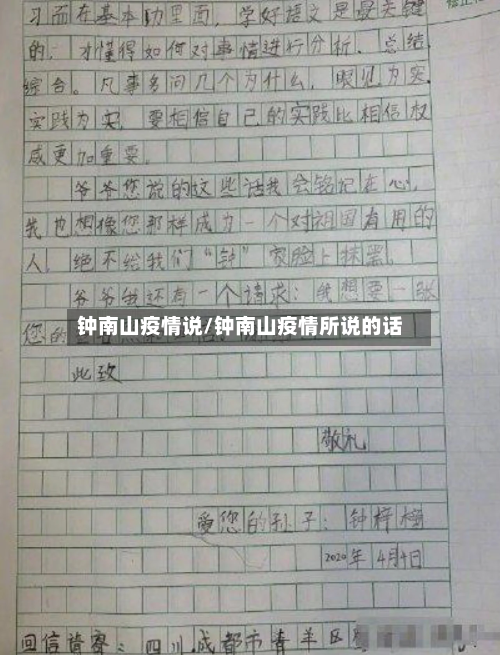 习而在基本功里面，学好语文是最关键
的，才懂得如何对事情进行分析、总结、
综合。凡事多问几个为什么，眼见为实，
实践为实，要相信自己的实践比相信权
威更加重要。
爷爷您说的这些话我会铭记在心，
我也想像您那样成为一个对祖国有用的
人，绝不给我们“钟”家脸上抹黑。
爷爷我还有一个请求：我想要一张
钟南山疫情说/钟南山疫情所说的话
您的
此致
敬礼
爱您的孙子：钟梓
2020年4月4日
回信背寄：四川成都市青羊区